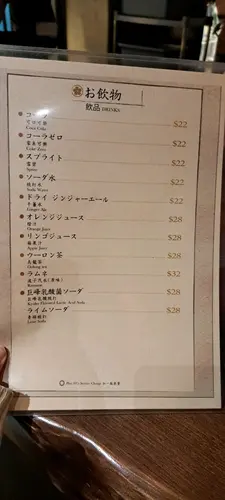 お飲物
飲品 DRINKS
コーラ $22
可口可樂
Coca Cola
コーラゼロ $22
零系可樂
Coke Zero
スプライト $22
雪碧
Sprite
ソーダ水 $22
梳打水
Soda Water
ドライ ジンジャーエール $22
干薑水
Ginger Ale
オレンジジュース $28
橙汁
Orange Juice
リンゴジュース $28
蘋果汁
Apple Juice
ウーロン茶 $28
烏龍茶
Oolong tea
ラムネ $32
波子汽水(原味)
Ramune
巨峰乳酸菌ソーダ $28
巨峰乳酸梳打
ライムソーダ $28
青檸梳打
Lime Soda